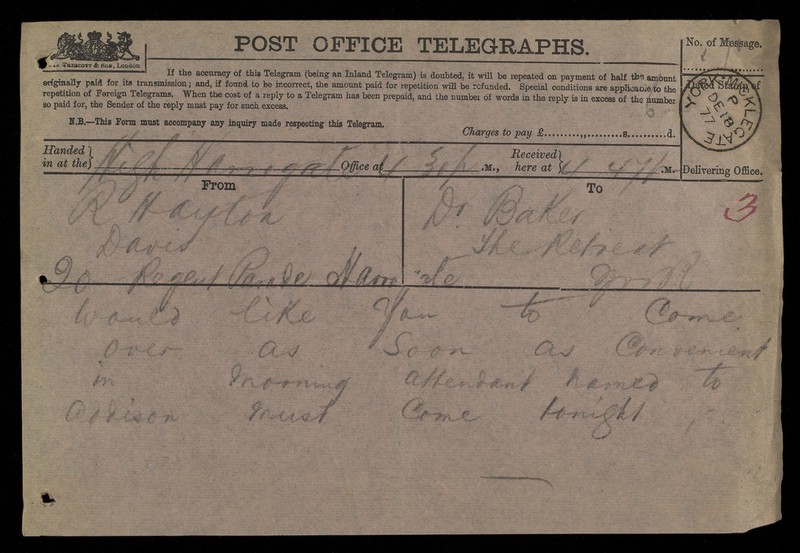 POST OFFICE TELEGRAPHS.
No. of Message.
TRUSCOTT & SON, LONDON
If the accuracy of this Telegram (being an Inland Telegram) is doubted, it will be repeated on payment of half the amount
originally paid for its transmission; and, if found to be incorrect, the amount paid for repetition will be refunded. Special conditions are applicable to the
repetition of Foreign Telegrams. When the cost of a reply to a Telegram has been prepaid, and the number of words in the reply is in excess of the number
so paid for, the Sender of the reply must pay for such excess.
Dated Stamp of
YORK · MICKLEGATE
P
DE 18
77
N.B.—This Form must accompany any inquiry made respecting this Telegram.
Charges to pay £..........,,..........s..........d.
Handed in at the} High Harrogate Office at 4 30 P .M., Received here at} 4 47 P .M.
Delivering Office.
From
To
3
R Hayton
Davis
20 Regent Parade Harro te
Dr Baker
The Retreat
York
Would like You to Come
over as Soon as Convenient
in Morning attendant named to
addison Must Come tonight